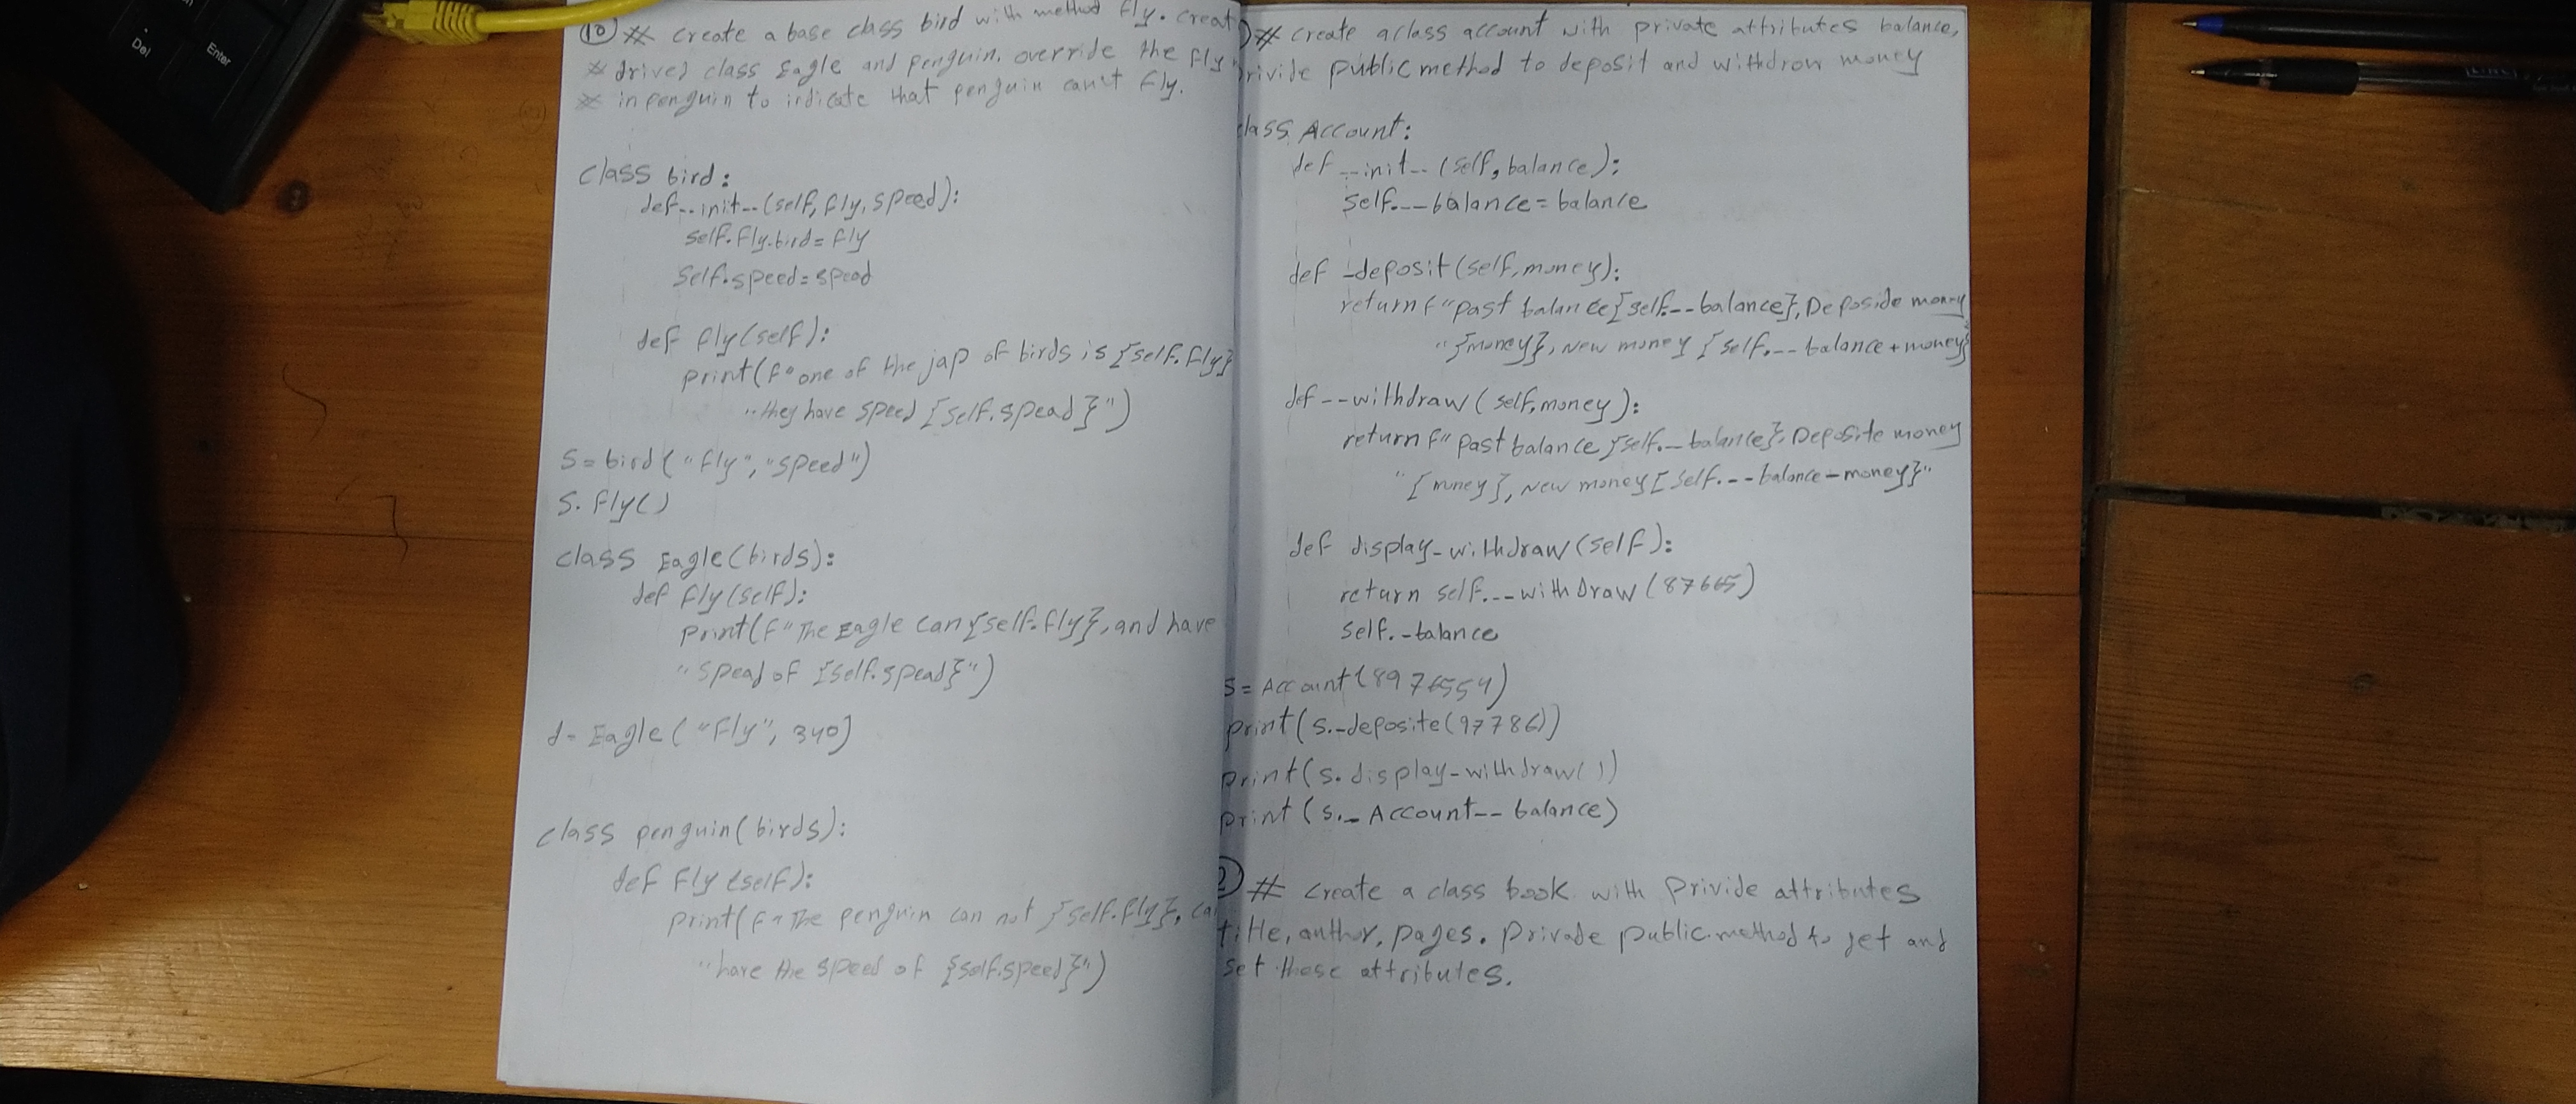 Del
Enter
10 * create a base class bird with method fly. creat
* drived class Eagle and penguin. override the fly
* in penguin to indicate that penguin can't fly.
class bird:
def __init__(self, fly, speed):
self.fly-bird = fly
self.speed = speed
def fly(self):
print(f"one of the jap of birds is {self.fly}
"they have speed {self.spead}")
S = bird("fly", "speed")
S.fly()
class Eagle(birds):
def fly(self):
print(f"The Eagle can {self.fly}, and have
"spead of {self.spead}")
d = Eagle("fly", 340)
class penguin(birds):
def fly(self):
print(f"The penguin can not {self.fly},
"have the speed of {self.speed}")
) * create a class account with private attributes balance,
rivide public method to deposit and withdrow money
class Account:
def __init__(self, balance):
self.__balance = balance
def _deposit(self, money):
return f"past balance {self.__balance}, Deposide money
"{money}, new money {self.__balance + money}
def __withdraw(self, money):
return f"past balance {self.__balance}, Deposite money
"{money}, new money {self.__balance - money}"
def display_withdraw(self):
return self.__withdraw(87665)
self._balance
S = Account(8976554)
print(S._deposite(97786))
print(S.display_withdraw())
print(S._Account__balance)
2) * create a class book with privide attributes
title, author, pages. privade public method to get and
set these attributes.